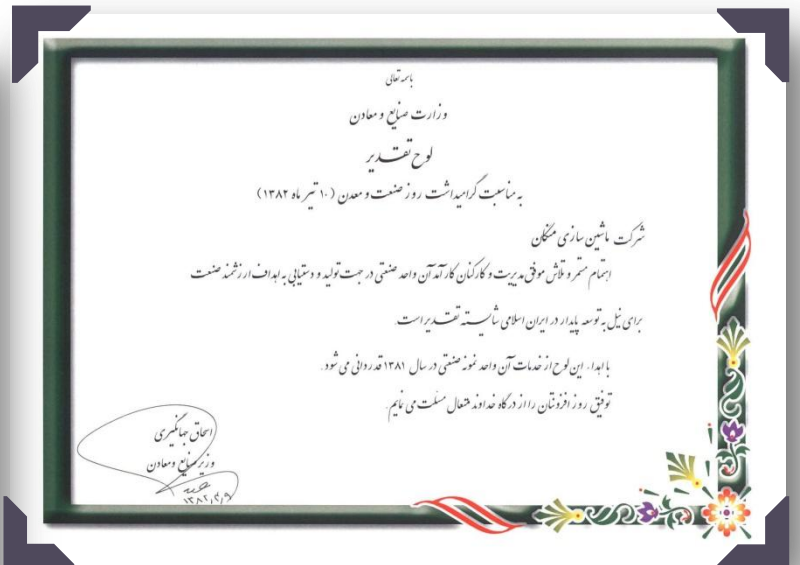 باسمه تعالی
وزارت صنایع و معادن
لوح تقدیر
به مناسبت گرامیداشت روز صنعت و معدن (۱۰ تیر ماه ۱۳۸۲)
شرکت ماشین سازی مکان
اهتمام مستمر و تلاش موفق مدیریت و کارکنان کارآمد آن واحد صنعتی در جهت تولید و دستیابی به اهداف ارزشمند صنعت
برای نیل به توسعه پایدار در ایران اسلامی شایسته تقدیر است.
با اهداء این لوح از خدمات آن واحد نمونه صنعتی در سال ۱۳۸۱ قدردانی می شود.
توفیق روز افزونتان را از درگاه خداوند متعال مسئلت می نمایم.
اسحاق جهانگیری
وزیر صنایع و معادن